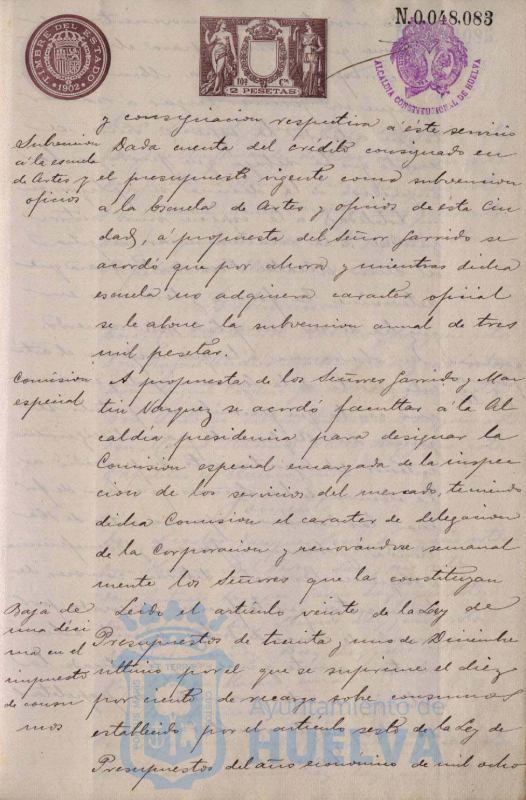 TIMBRE DEL ESTADO
1902
2 PESETAS
N.0.048.083
ALCALDIA CONSTITUCIONAL DE HUELVA
y consignacion respectiva á este servicio
Subvencion
á la escuela
de Artes y
oficios
Dada cuenta del crédito consignado en
el presupuesto vigente como subvencion
a la Escuela de Artes y oficios de ésta Ciu
dad, á propuesta del Señor Garrido se
acordó que por ahora y mientras dicha
escuela no adquiera caracter oficial
se le abone la subvencion anual de tres
mil pesetas.
Comision
especial
A propuesta de los Señores Garrido y Mar
tin Vazquez se acordó facultar á la Al
caldía presidencia para designar la
Comision especial encargada de la inspec
cion de los servicios del mercado, teniendo
dicha Comision el caracter de delegacion
de la Corporacion y renovándose semanal
mente los Señores que la constituyan
Baja de
una déci
ma en el
impuesto
de consu
mos
Leido el articulo veinte de la Ley de
Presupuestos de treinta y uno de Diciembre
último por el que se suprime el diez
por ciento de recargo sobre consumos
establecido por el artículo sesto de la Ley de
Presupuestos del año economico de mil ocho
Ayuntamiento de
HUELVA